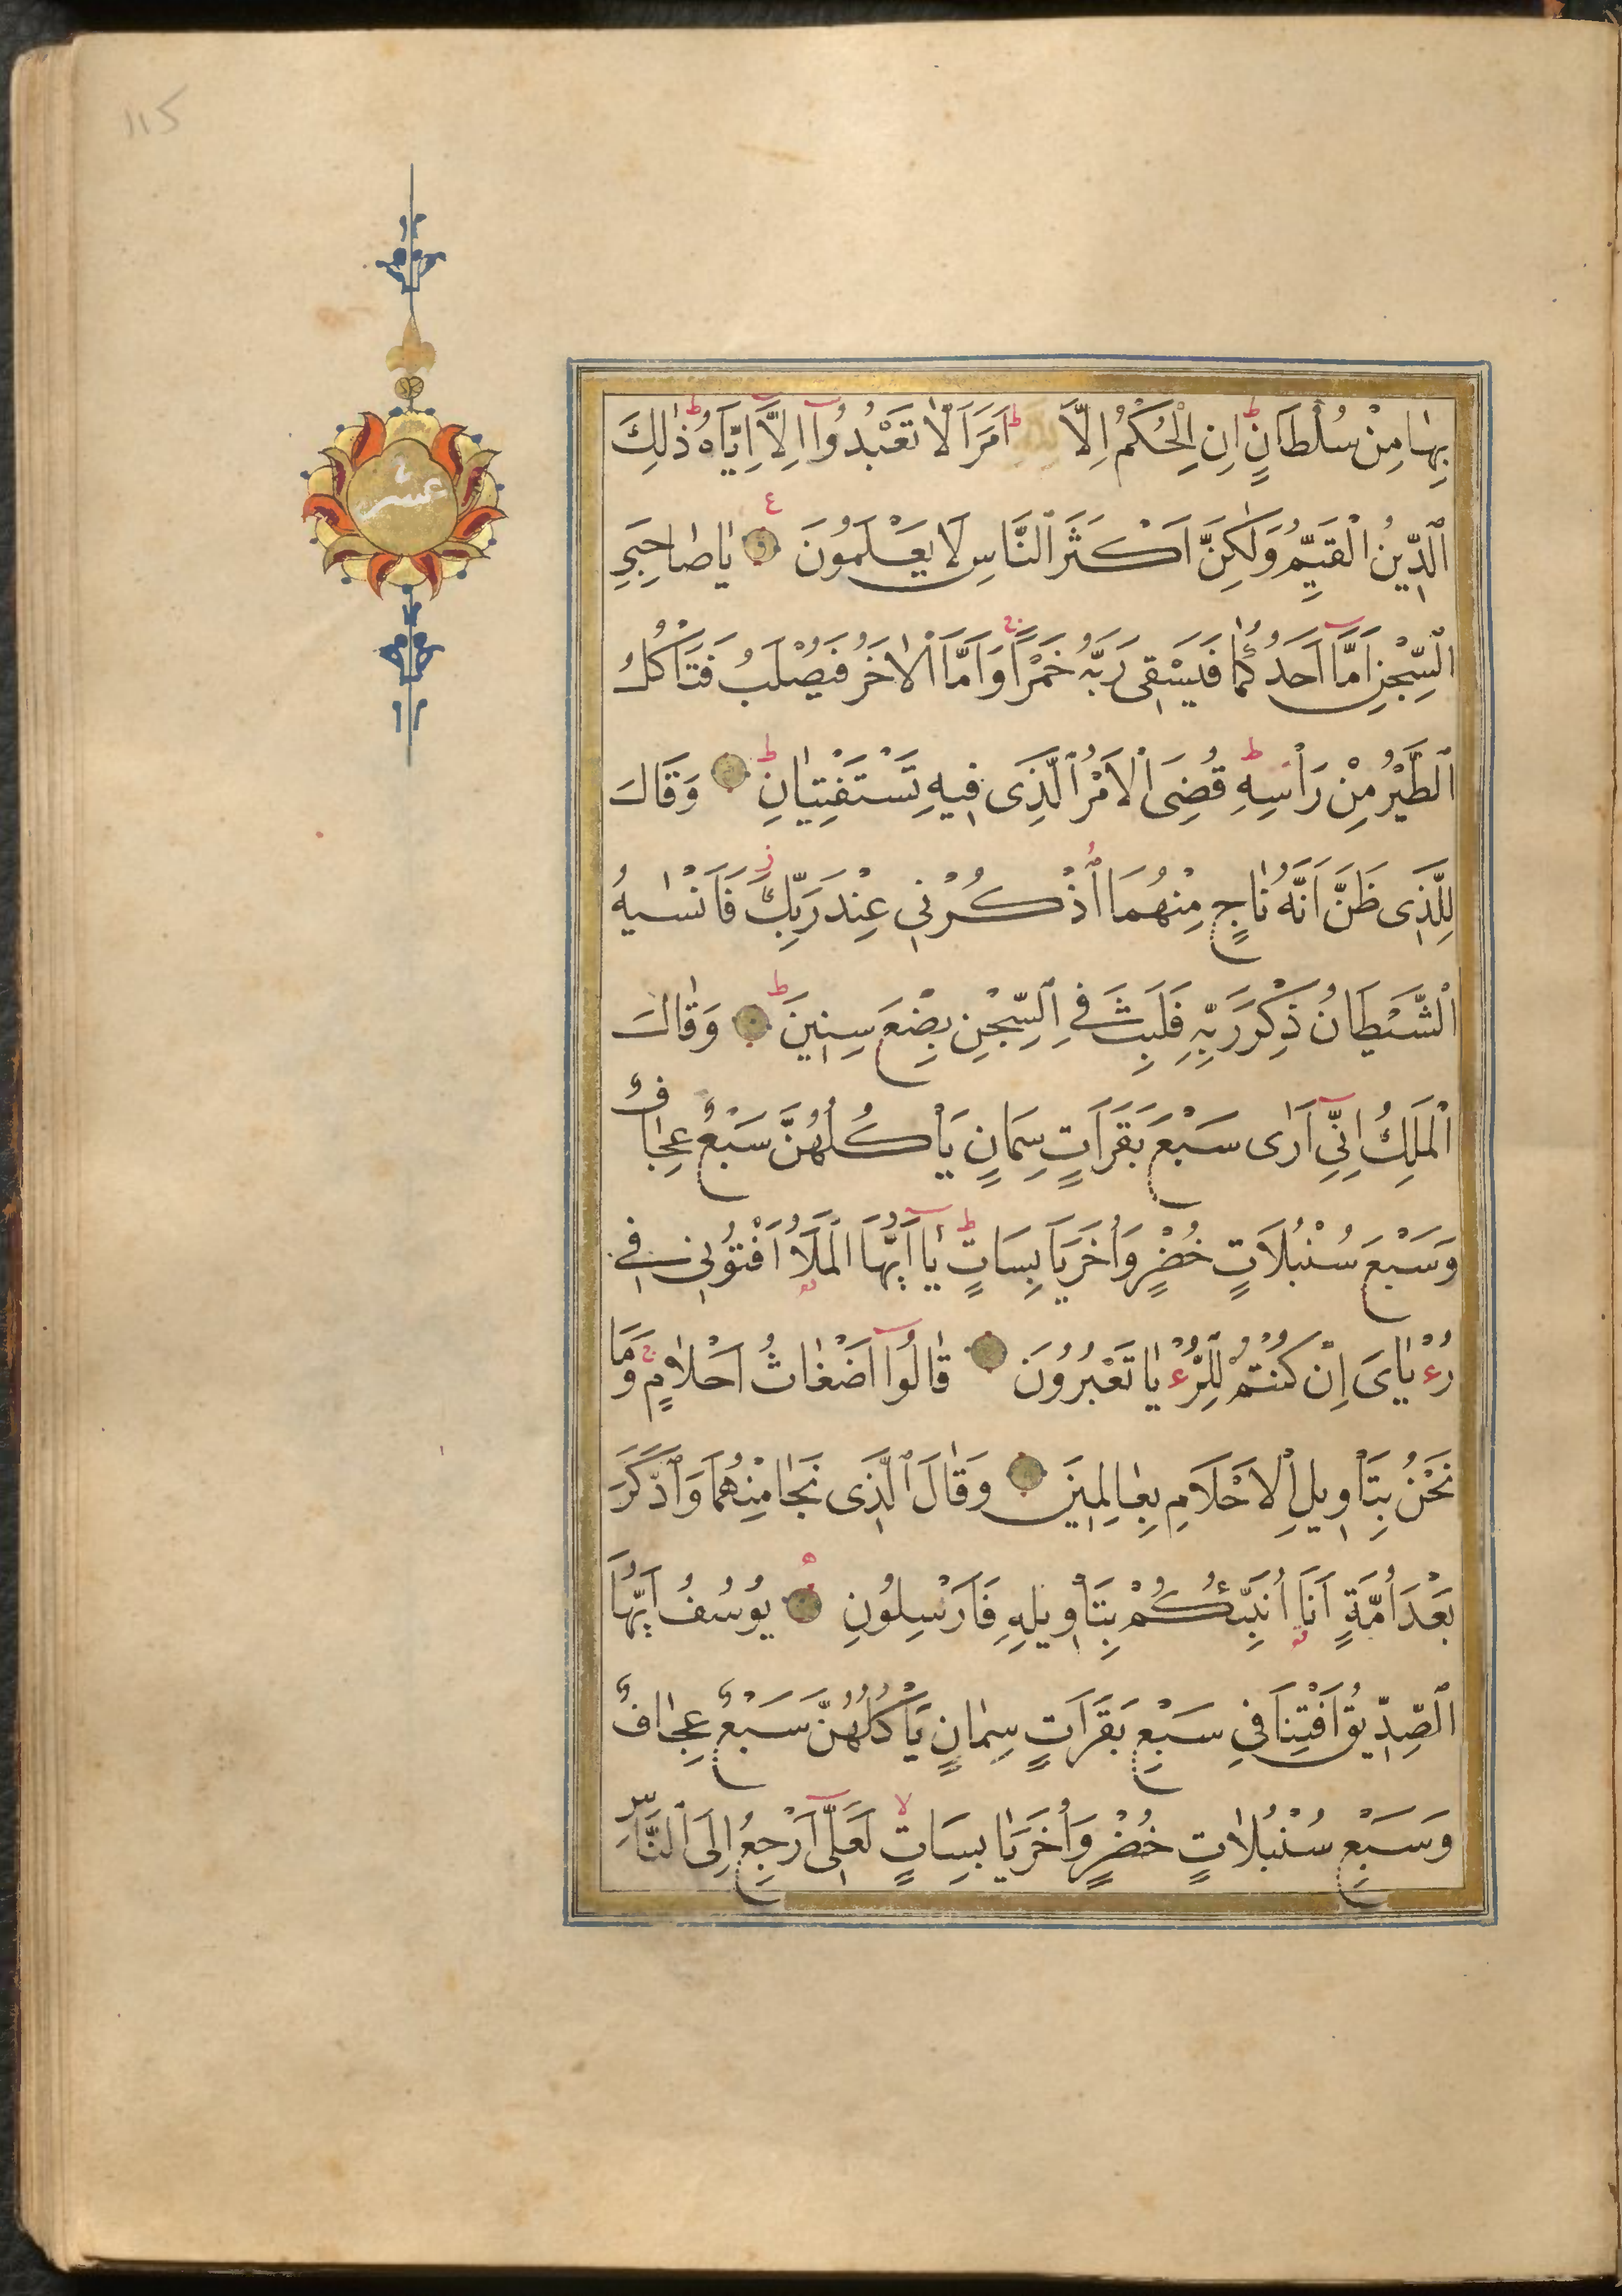 115
عشر
بِهَا مِنْ سُلْطَانٍ ط اِنِ الْحُكْمُ اِلَّا لله ط اَمَرَ اَلَّا تَعْبُدُوا اِلَّا اِيَّاهُ ط ذٰلِكَ
الدِّينُ الْقَيِّمُ وَلٰكِنَّ اَكْثَرَ النَّاسِ لَا يَعْلَمُونَ ع يَا صَاحِبَيِ
السِّجْنِ اَمَّا اَحَدُكُمَا فَيَسْقِى رَبَّهُ خَمْرًا ج وَاَمَّا الْاٰخَرُ فَيُصْلَبُ فَتَأْكُلُ
الطَّيْرُ مِنْ رَأْسِهِ ط قُضِىَ الْاَمْرُ الَّذِى فِيهِ تَسْتَفْتِيَانِ ط وَقَالَ
لِلَّذِى ظَنَّ اَنَّهُ نَاجٍ مِنْهُمَا اُذْكُرْنِى عِنْدَ رَبِّكَ ز فَاَنْسٰيهُ
الشَّيْطَانُ ذِكْرَ رَبِّهِ فَلَبِثَ فِى السِّجْنِ بِضْعَ سِنِينَ ط وَقَالَ
الْمَلِكُ اِنِّى اَرٰى سَبْعَ بَقَرَاتٍ سِمَانٍ يَأْكُلُهُنَّ سَبْعٌ عِجَافٌ
وَسَبْعَ سُنْبُلَاتٍ خُضْرٍ وَاُخَرَ يَابِسَاتٍ ط يَا اَيُّهَا الْمَلَأُ اَفْتُونِى فِى
رُءْيَاىَ اِنْ كُنْتُمْ لِلرُّءْيَا تَعْبُرُونَ قَالُوا اَضْغَاثُ اَحْلَامٍ ج وَمَا
نَحْنُ بِتَأْوِيلِ الْاَحْلَامِ بِعَالِمِينَ وَقَالَ الَّذِى نَجَا مِنْهُمَا وَادَّكَرَ
بَعْدَ اُمَّةٍ اَنَا اُنَبِّئُكُمْ بِتَأْوِيلِهِ فَاَرْسِلُونِ ه يُوسُفُ اَيُّهَا
الصِّدِّيقُ اَفْتِنَا فِى سَبْعِ بَقَرَاتٍ سِمَانٍ يَأْكُلُهُنَّ سَبْعٌ عِجَافٌ
وَسَبْعِ سُنْبُلَاتٍ خُضْرٍ وَاُخَرَ يَابِسَاتٍ لا لَعَلِّى اَرْجِعُ اِلَى النَّاسِ